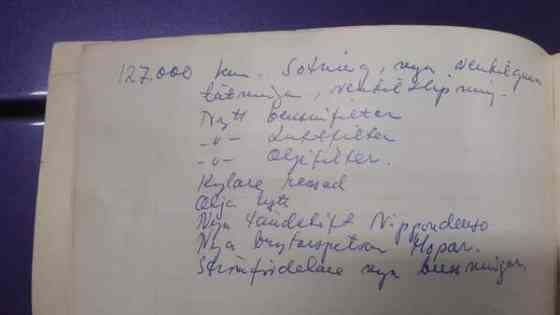 127.000 km. Sotning, nya ventilgum
tätninga, ventilslipning.
Nytt bensinfilter
-"- Luftfilter
-"- Oljefilter.
Kylare rensad
Olja bytt
Nya tändstift Nippondenso
Nya brytarspetsar Mopar.
Strömfördelare nya bussningar